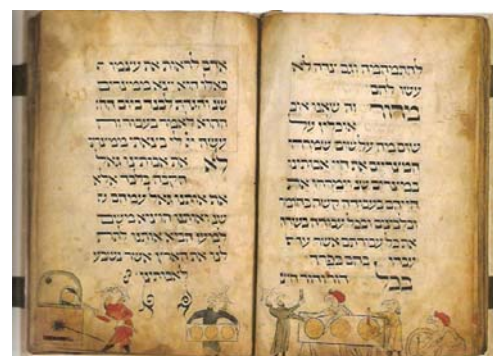 להתמהמה וגם צדה לא
עשו להם
מרור זה שאנו
אוכלין על
שום מה על שום שמררו
המצריים את חיי אבותינו
במצרים שנ וימררו את
חייהם בעבודה קשה בחומר
ובלבנים ובכל עבודה בשדה
את כל עבודתם אשר
עבדו בהם בפרך
בכל דור ודור חייב
אדם לראות את עצמו
כאלו הוא יצא ממצרים
שנ והגדת לבנך ביום
ההוא לאמר בעבור זה
עשה לי בצאתי ממצרים
לא את אבותינו גאל
הקבה בלבד אלא
את אותנו גאל עמהם
שנ ואותנו הוציא משם
למען הביא אותנו לתת
לנו את הארץ אשר נשבע
לאבותינו